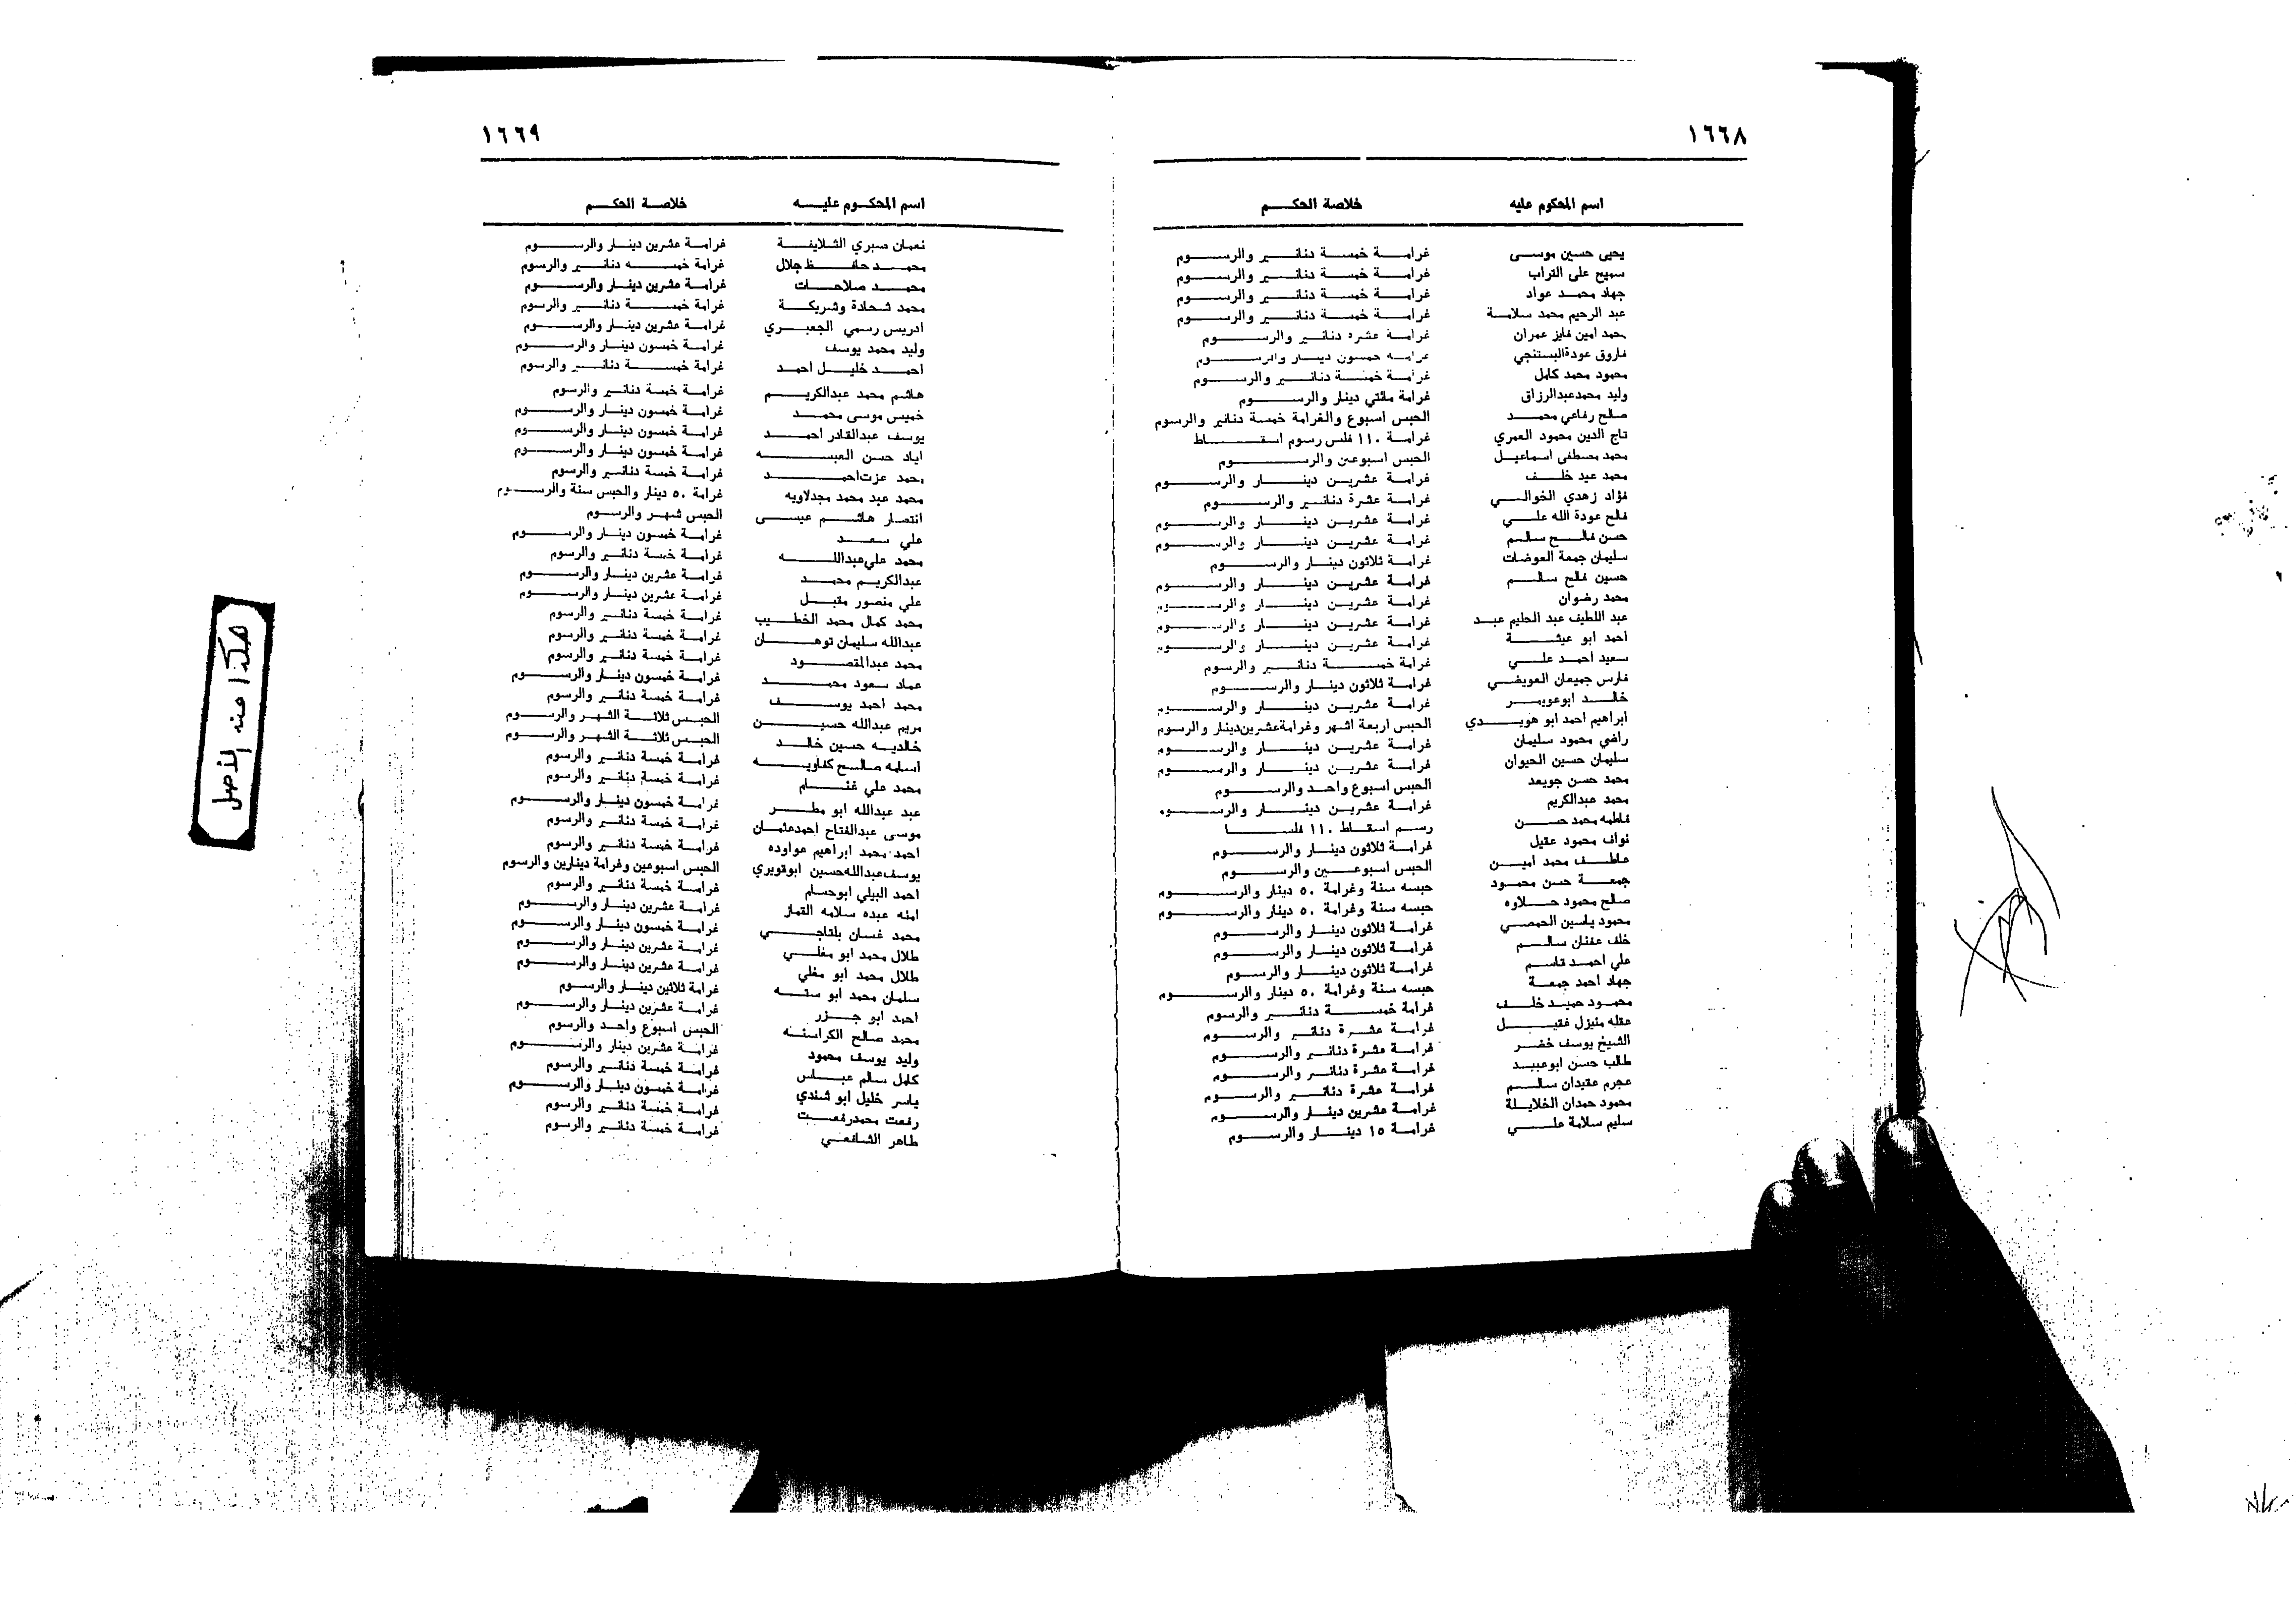 ١٦٦٨
اسم المحكوم عليه خلاصة الحكم
يحيى حسين موسى غرامة خمسة دنانير والرسوم
سميح على التراب غرامة خمسة دنانير والرسوم
جهاد محمد عواد غرامة خمسة دنانير والرسوم
عبد الرحيم محمد سلامة غرامة خمسة دنانير والرسوم
محمد امين فايز عمران غرامة عشره دنانير والرسوم
فاروق عودة البستنجي غرامه خمسون دينار والرسوم
محمود محمد كامل غرامة خمسة دنانير والرسوم
وليد محمد عبدالرزاق غرامة مائتي دينار والرسوم
صالح رفاعي محمد الحبس اسبوع والغرامة خمسة دنانير والرسوم
تاج الدين محمود العمري غرامة ١١٠ فلس رسوم اسقاط
محمد مصطفى اسماعيل الحبس اسبوعين والرسوم
محمد عيد خلف غرامة عشرين دينار والرسوم
فؤاد زهدي الخوالي غرامة عشرة دنانير والرسوم
فالح عودة الله علي غرامة عشرين دينار والرسوم
حسن فالح سالم غرامة عشرين دينار والرسوم
سليمان جمعة العوضات غرامة ثلاثون دينار والرسوم
حسين فالح سالم غرامة عشرين دينار والرسوم
محمد رضوان غرامة عشرين دينار والرسوم
عبد اللطيف عبد الحليم عبد غرامة عشرين دينار والرسوم
احمد ابو عيشة غرامة عشرين دينار والرسوم
سعيد احمد علي غرامة خمسة دنانير والرسوم
فارس جميعان العويضي غرامة ثلاثون دينار والرسوم
خالد ابوعويمر غرامة عشرين دينار والرسوم
ابراهيم احمد ابو هويدي الحبس اربعة اشهر وغرامة عشرين دينار والرسوم
راضي محمود سليمان غرامة عشرين دينار والرسوم
سليمان حسين الحيوان غرامة عشرين دينار والرسوم
محمد حسن جويعد الحبس اسبوع واحد والرسوم
محمد عبدالكريم غرامة عشرين دينار والرسوم
فاطمه محمد حسن رسم اسقاط ١١٠ فلسا
نواف محمود عقيل غرامة ثلاثون دينار والرسوم
عاطف محمد امين الحبس اسبوعين والرسوم
جمعة حسن محمود حبسه سنة وغرامة ٥٠ دينار والرسوم
صالح محمود حلاوه حبسه سنة وغرامة ٥٠ دينار والرسوم
محمود ياسين الحمصي غرامة ثلاثون دينار والرسوم
خلف عفنان سالم غرامة ثلاثون دينار والرسوم
علي احمد قاسم غرامة ثلاثون دينار والرسوم
جهاد احمد جمعة حبسه سنة وغرامة ٥٠ دينار والرسوم
محمود حميد خلف غرامة خمسة دنانير والرسوم
عقله منيزل فقيل غرامة عشرة دنانير والرسوم
الشيخ يوسف خضر غرامة عشرة دنانير والرسوم
طالب حسن ابوعبيد غرامة عشرة دنانير والرسوم
عجرم عقيدان سالم غرامة عشرة دنانير والرسوم
محمود حمدان الخلايلة غرامة عشرين دينار والرسوم
سليم سلامة علي غرامة ١٥ دينار والرسوم
١٦٦٩
اسم المحكوم عليه خلاصة الحكم
نعمان صبري الشلايفة غرامة عشرين دينار والرسوم
محمد حافظ جلال غرامة خمسه دنانير والرسوم
محمد صلاحات غرامة عشرين دينار والرسوم
محمد شحادة وشريكة غرامة خمسة دنانير والرسوم
ادريس رسمي الجعبري غرامة عشرين دينار والرسوم
وليد محمد يوسف غرامة خمسون دينار والرسوم
احمد خليل احمد غرامة خمسة دنانير والرسوم
هاشم محمد عبدالكريم غرامة خمسة دنانير والرسوم
خميس موسى محمد غرامة خمسون دينار والرسوم
يوسف عبدالقادر احمد غرامة خمسون دينار والرسوم
اياد حسن العبسه غرامة خمسون دينار والرسوم
محمد عزت احمد غرامة خمسة دنانير والرسوم
محمد عبد محمد مجدلاويه غرامة ٥٠ دينار والحبس سنة والرسوم
انتصار هاشم عيسى الحبس شهر والرسوم
علي سعد غرامة خمسون دينار والرسوم
محمد علي عبدالله غرامة خمسة دنانير والرسوم
عبدالكريم محمد غرامة عشرين دينار والرسوم
علي منصور مقبل غرامة عشرين دينار والرسوم
محمد كمال محمد الخطيب غرامة خمسة دنانير والرسوم
عبدالله سليمان توهان غرامة خمسة دنانير والرسوم
محمد عبدالمقصود غرامة خمسة دنانير والرسوم
عماد سعود محمد غرامة خمسون دينار والرسوم
محمد احمد يوسف غرامة خمسة دنانير والرسوم
مريم عبدالله حسين الحبس ثلاثة الشهر والرسوم
خالديه حسين خالد الحبس ثلاثة الشهر والرسوم
اسامه صالح كفاويه غرامة خمسة دنانير والرسوم
محمد علي غنام غرامة خمسة دنانير والرسوم
عبد عبدالله ابو مطر غرامة خمسون دينار والرسوم
موسى عبدالفتاح احمد عثمان غرامة خمسة دنانير والرسوم
احمد محمد ابراهيم عواوده غرامة خمسة دنانير والرسوم
يوسف عبدالله حسين ابوقويري الحبس اسبوعين وغرامة دينارين والرسوم
احمد البيلي ابوحسام غرامة خمسة دنانير والرسوم
امنه عبده سلامه القماز غرامة عشرين دينار والرسوم
محمد غسان بلقاجي غرامة خمسون دينار والرسوم
طلال محمد ابو مغلي غرامة عشرين دينار والرسوم
طلال محمد ابو مغلي غرامة عشرين دينار والرسوم
سلمان محمد ابو سته غرامة ثلاثين دينار والرسوم
احمد ابو جزر غرامة عشرين دينار والرسوم
محمد صالح الكراسنه الحبس اسبوع واحد والرسوم
وليد يوسف محمود غرامة عشرين دينار والرسوم
كامل سالم عباس غرامة خمسة دنانير والرسوم
ياسر خليل ابو شندي غرامة خمسون دينار والرسوم
رفعت محمد رفعت غرامة خمسة دنانير والرسوم
طاهر الشافعي غرامة خمسة دنانير والرسوم
هكذا منه الأصل